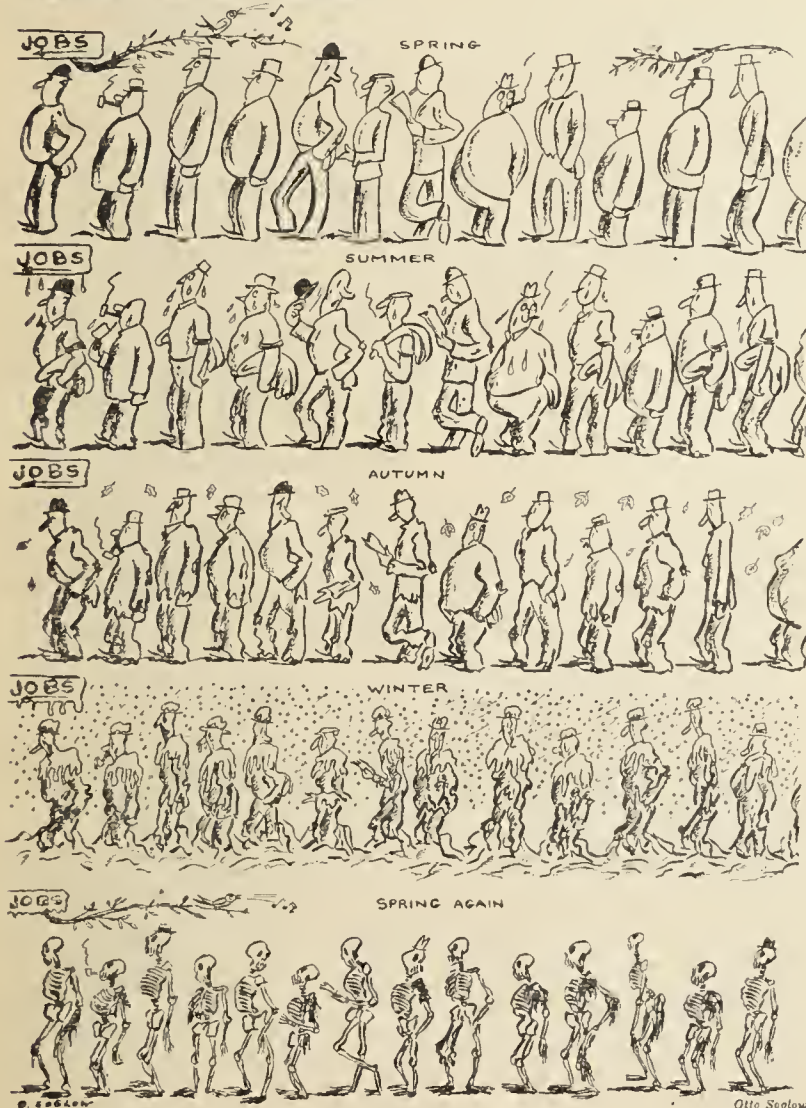 JOBS
SPRING
JOBS
SUMMER
JOBS
AUTUMN
JOBS
WINTER
JOBS
SPRING AGAIN
O. SOGLOW
Otto Soglow